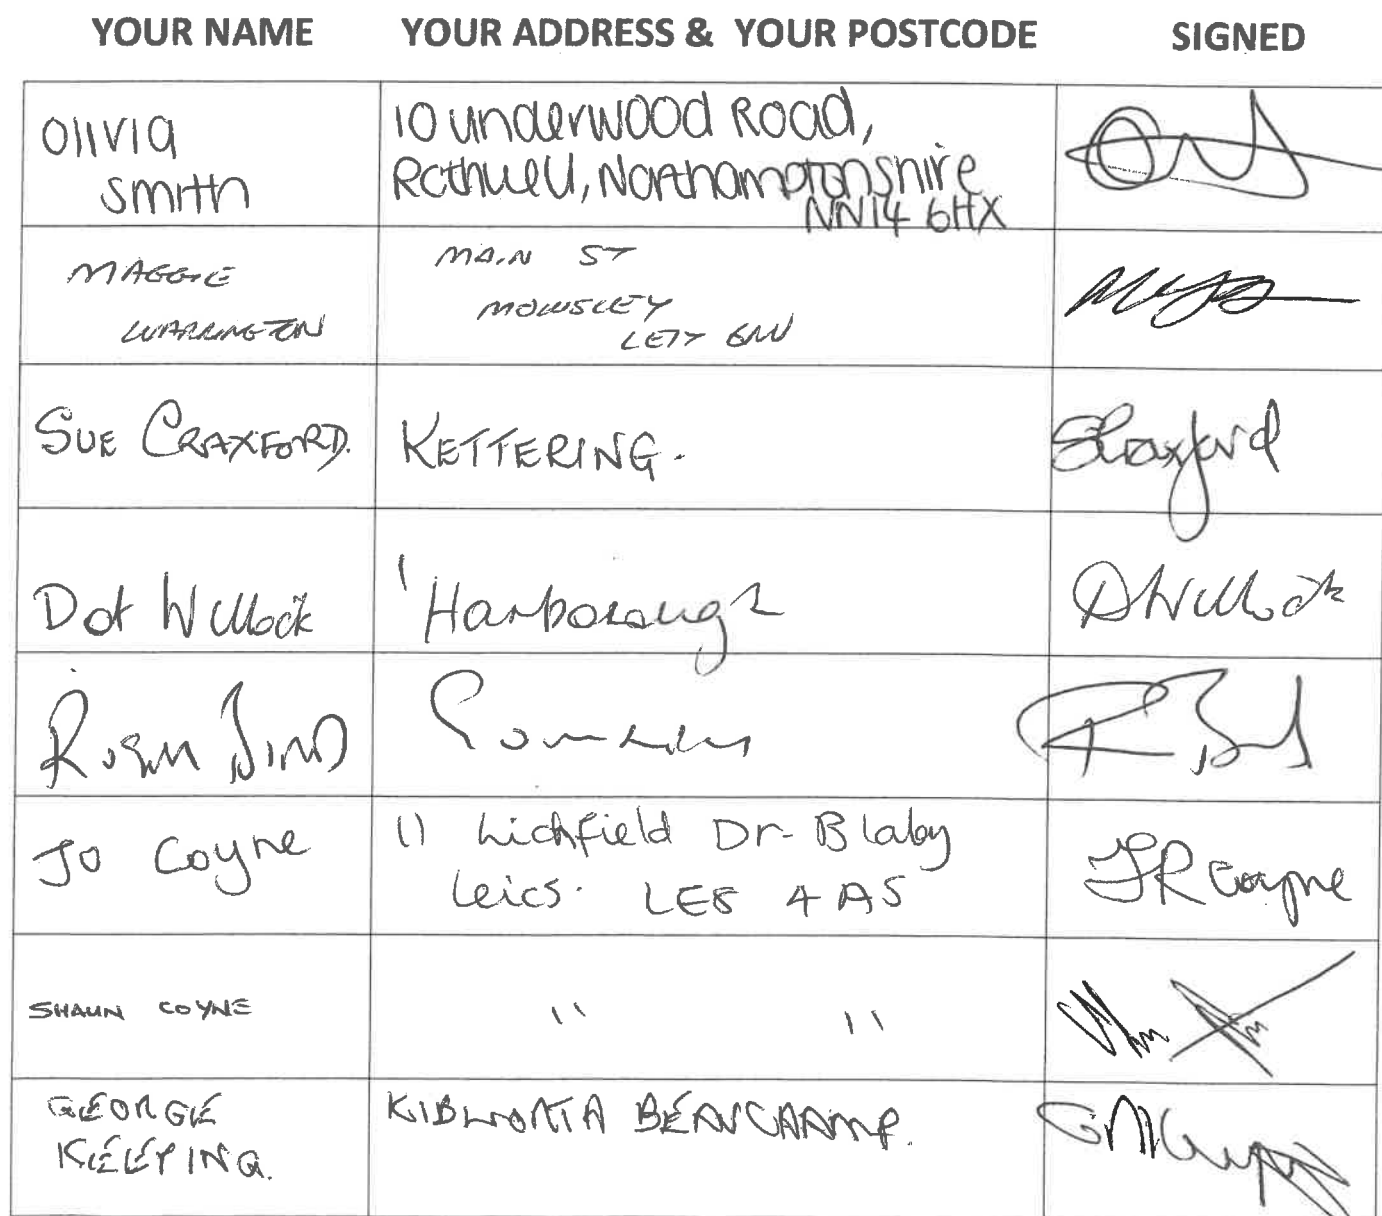 YOUR NAME YOUR ADDRESS & YOUR POSTCODE SIGNED
Olivia
Smith
10 underwood Road,
Rothwell, Northamptonshire
NN14 6HX
MAGGIE
WARRINGTON
MAIN ST
MOWSLEY
LE17
SUE CRAXFORD.
KETTERING.
SCraxford
Dot Willock
Harborough
DWillock
Jo Coyne
11 Lichfield Dr- Blaby
Leics. LE8 4AS
JR Coyne
SHAUN COYNE
" "
GEORGE
KEEPING.
KIBWORTH BEAUCHAMP.